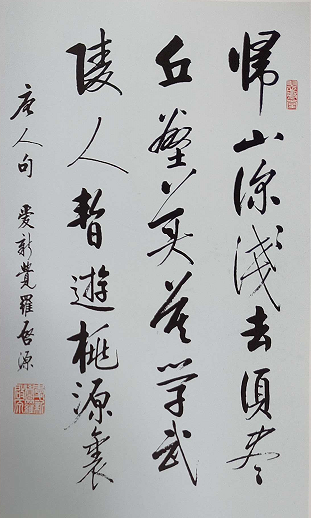 歸山深淺去須盡
丘壑美莫學武
陵人暫遊桃源裏
唐人句 愛新覺羅啓源